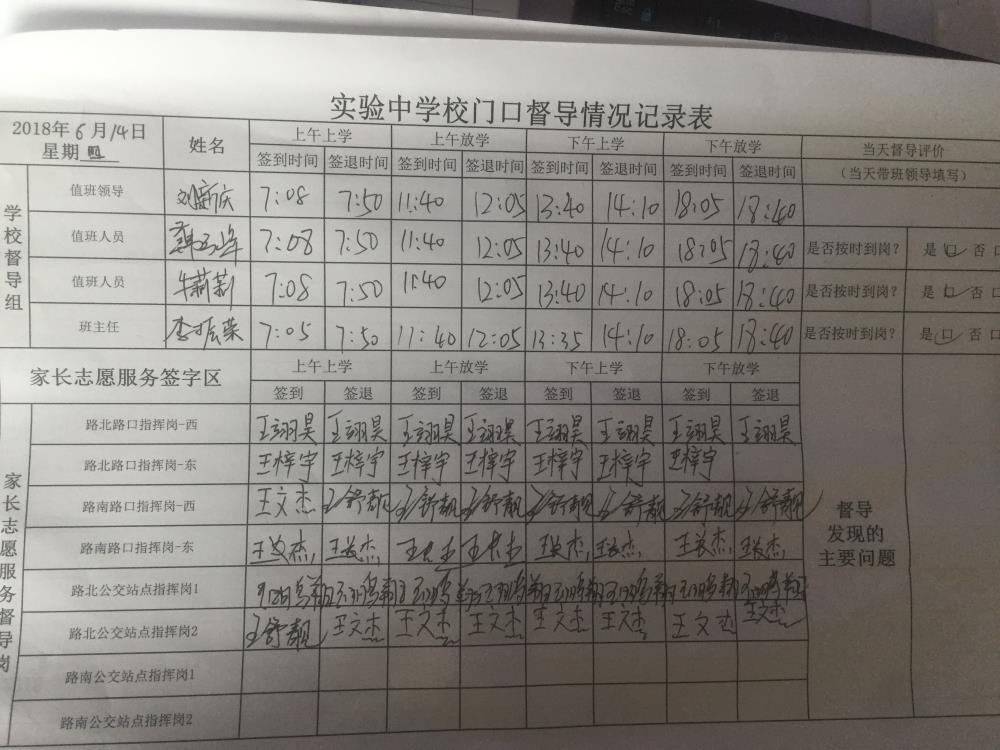 实验中学校门口督导情况记录表
2018年6月14日 星期四 姓名 上午上学 上午放学 下午上学 下午放学 当天督导评价
签到时间 签退时间 签到时间 签退时间 签到时间 签退时间 签到时间 签退时间 (当天带班领导填写)
学校督导组
值班领导 刘新庆 7:08 7:50 11:40 12:05 13:40 14:10 18:05 18:40
值班人员 7:08 7:50 11:40 12:05 13:40 14:10 18:05 18:40 是否按时到岗? 是 口 否 口
值班人员 牛莉莉 7:08 7:50 11:40 12:05 13:40 14:10 18:05 18:40 是否按时到岗? 是 口 否 口
班主任 李振荣 7:05 7:50 11:40 12:05 13:35 14:10 18:05 18:40 是否按时到岗? 是 口 否 口
家长志愿服务签字区 上午上学 上午放学 下午上学 下午放学
签到 签退 签到 签退 签到 签退 签到 签退
家长志愿服务督导岗
路北路口指挥岗-西 王翊昊 王翊昊 王翊昊 王翊昊 王翊昊 王翊昊 王翊昊 王翊昊
路北路口指挥岗-东 王梓宇 王梓宇 王梓宇 王梓宇 王梓宇 王梓宇 王梓宇
路南路口指挥岗-西 王文杰 王舒靓 王舒靓 王舒靓 王舒靓 王舒靓 王舒靓 王舒靓
路南路口指挥岗-东
路北公交站点指挥岗1
路北公交站点指挥岗2 王舒靓 王文杰 王文杰 王文杰 王文杰 王文杰 王文杰 王文杰
路南公交站点指挥岗1
路南公交站点指挥岗2
督导
发现的
主要问题